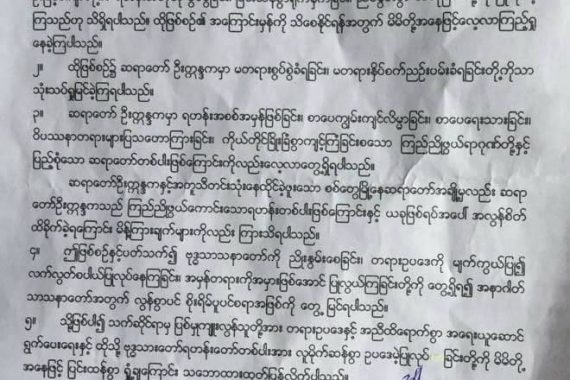 ကြသည်ဟု သိရှိရပါသည်။ ထိုဖြစ်စဉ်၏ အကြောင်းမှန်ကို သိစေနိုင်ရန်အတွက် မိမိတို့အနေဖြင့်လေ့လာကြည့်ရှု
နေခဲ့ကြပါသည်။
၂။ ထိုဖြစ်စဉ်၌ ဆရာတော် ဦးဣန္ဒကမှာ မတရားစွပ်စွဲခံရခြင်း၊ မတရားနှိပ်စက်ညှဉ်းပမ်းခံရခြင်းတို့ကိုသာ
သုံးသပ်ရှုမြင်ခဲ့ကြရပါသည်။
၃။ ဆရာတော် ဦးဣန္ဒကမှာ ရဟန်းအစစ်အမှန်ဖြစ်ခြင်း၊ စာပေကျွမ်းကျင်လိမ္မာခြင်း၊ စာပေရေးသားခြင်း၊
ဝိပဿနာတရားများပြသဟောကြားခြင်း၊ ကိုယ်တိုင်မြိုးခြံစွာကျင့်ကြံခြင်းစသော ကြည်ညိုဖွယ်ရာဂုဏ်တို့နှင့်
ပြည့်စုံသော ဆရာတော်တစ်ပါးဖြစ်ကြောင်းကိုလည်းလေ့လာတွေ့ရှိရပါသည်။
ဆရာတော်ဦးဣန္ဒကနှင့်အကူသီတင်းသုံးနေထိုင်ခဲ့ဖူးသော စစ်တွေမြို့နေဆရာတော်အချို့မှလည်း ဆရာ
တော်ဦးဣန္ဒကသည် ကြည်ညိုဖွယ်ကောင်းသောရဟန်းတစ်ပါးဖြစ်ကြောင်းနှင့် ယခုဖြစ်ရပ်အပေါ် အလွန်စိတ်
ထိခိုက်ခဲ့ရကြောင်း မိန့်ကြားချက်များကိုလည်း ကြားသိရပါသည်။
၄။ ဤဖြစ်စဉ်နှင့်ပတ်သက်၍ ဗုဒ္ဓသာသနာတော်ကို ညှိုးနွမ်းစေခြင်း၊ တရားဥပဒေကို မျက်ကွယ်ပြု၍
လက်လွတ်စပါယ်ပြုလုပ်နေကြခြင်း၊ အမှန်တရားကိုအမှားဖြစ်အောင် ပြုလုပ်ကြခြင်းတို့ကို တွေ့ရှိရ၍ အနာဂါတ်
သာသနာတော်အတွက် လွန်စွာပင် စိုးရိမ်ပူပင်စရာအဖြစ်ကို တွေ့မြင်ရပါသည်။
၅။ သို့ဖြစ်ပါ၍ သက်ဆိုင်ရာမှ ဖြစ်မှုကျူးလွန်သူတို့အား တရားဥပဒေနှင့် အညီထိရောက်စွာ အရေးယူဆောင်
ရွက်ပေးရေးနှင့် ထိုသို့ ဗုဒ္ဓသားတော်ရဟန်းတော်တစ်ပါးအား လူမဆန်စွာ ဥပဒေမဲ့ပြုလုပ် ခြင်းတို့ကို မိမိတို့
အနေဖြင့် ပြင်းထန်စွာ ရှုံ့ချကြောင်း သဘောထားထုတ်ပြန်လိုက်ပါသည်။